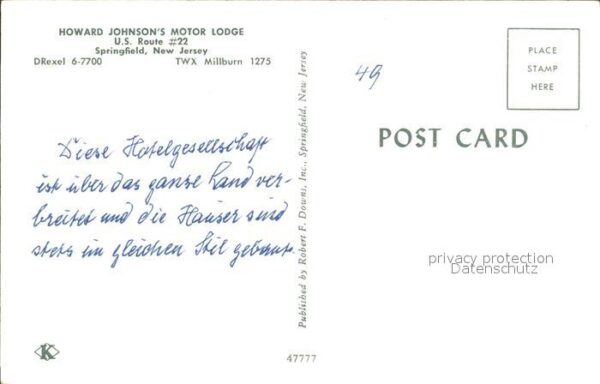 HOWARD JOHNSON'S MOTOR LODGE
U.S. Route #22
Springfield, New Jersey
DRexel 6-7700 TWX Millburn 1275
Diese Hotelgesellschaft
ist über das ganze Land ver-
breitet und die Häuser sind
stets im gleichen Stil gebaut.
Published by Robert F. Downs, Inc., Springfield, New Jersey
49
PLACE
STAMP
HERE
POST CARD
privacy protection
Datenschutz
K
47777